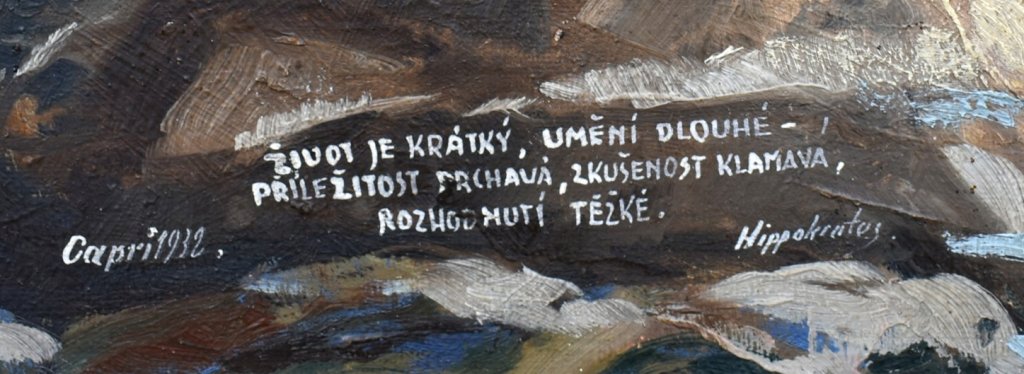 ŽIVOT JE KRÁTKÝ, UMĚNÍ DLOUHÉ –
PŘÍLEŽITOST PRCHAVÁ, ZKUŠENOST KLAMAVA,
ROZHODNUTÍ TĚŽKÉ.
Capri 1932.
Hippokrates.